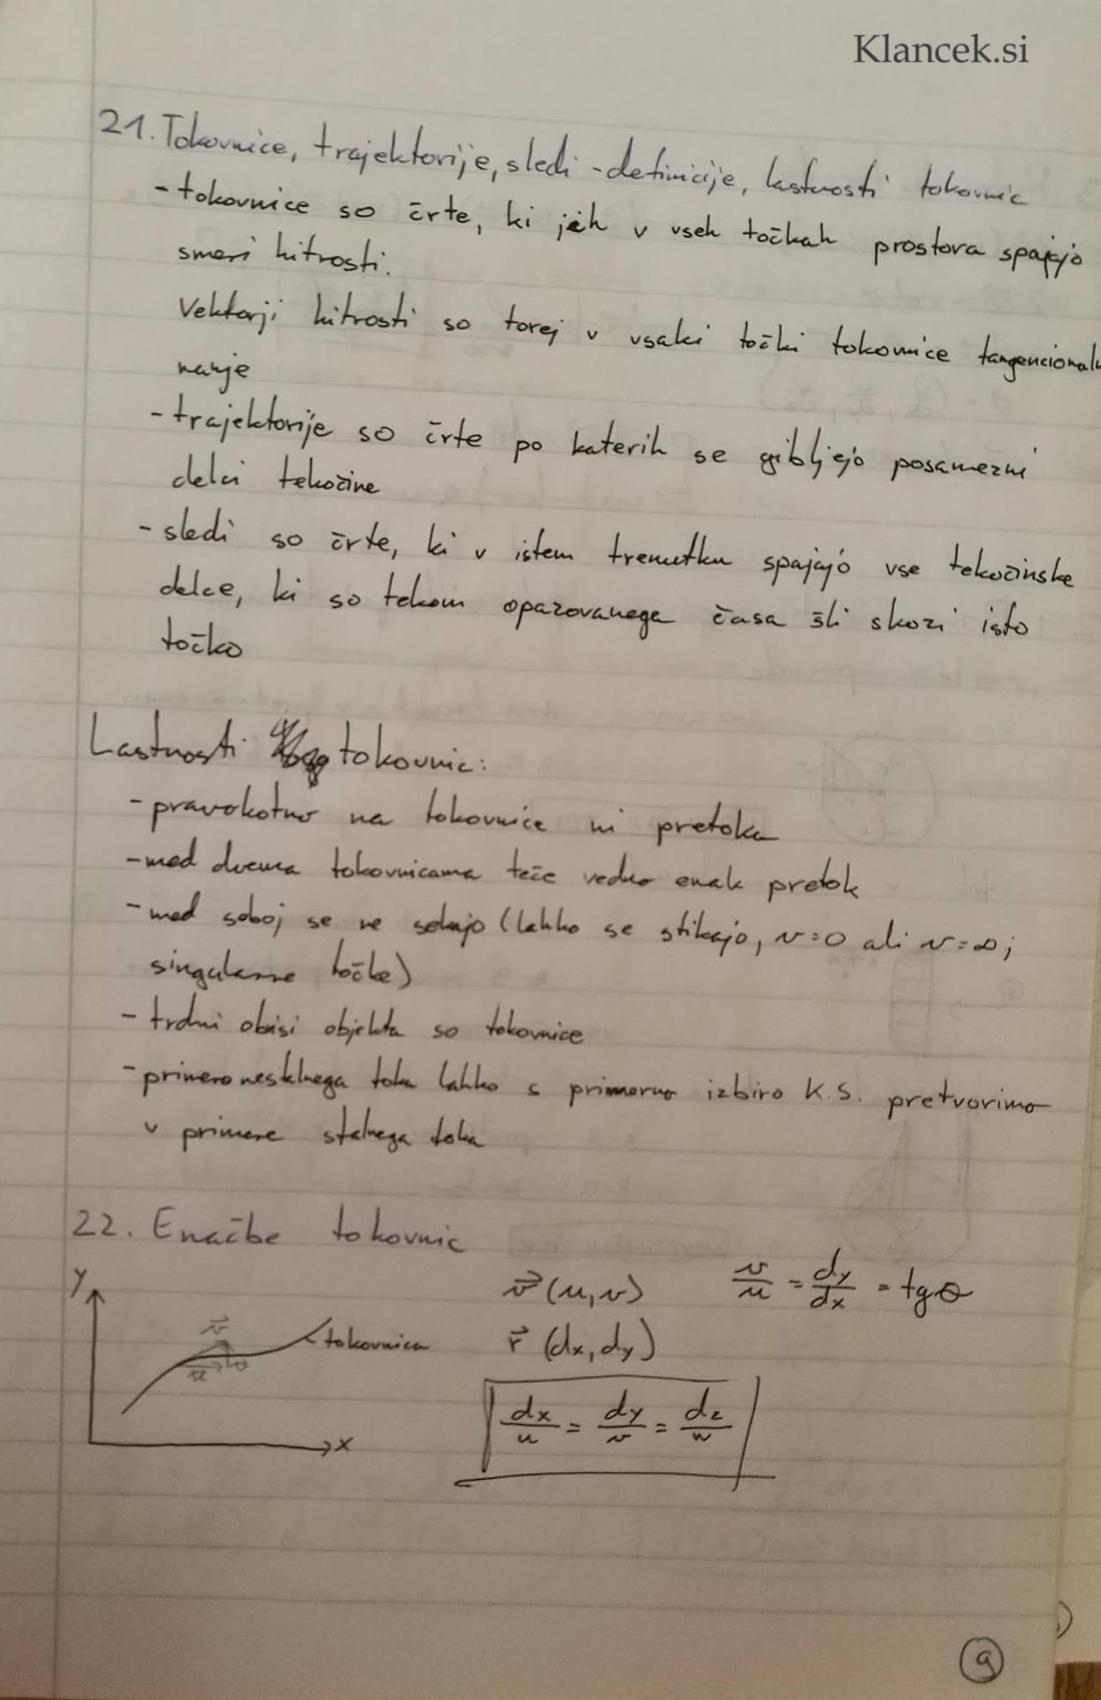 Klancek.si
21. Tokovnice, trajektorije, sledi - definicije, lastnosti tokovnic
- tokovnice so črte, ki jih v vseh točkah prostora spajajo
smeri hitrosti.
Vektorji hitrosti so torej v vsaki točki tokovnice tangencionalni
nanje
- trajektorije so črte po katerih se gibljejo posamezni
delci tekočine
- sledi so črte, ki v istem trenutku spajajo vse tekočinske
delce, ki so tekom opazovanega časa šli skozi isto
točko
Lastnosti tokovnic:
- pravokotno na tokovnice ni pretoka
- med dvema tokovnicama teče vedno enak pretok
- med seboj se ne sekajo (lahko se stikajo, v=0 ali v=∞;
singularne točke)
- trdni obrisi objekta so tokovnice
- primere nestalnega toka lahko s primerno izbiro K.S. pretvorimo
v primere stalnega toka
22. Enačbe tokovnic
y
v⃗ (u,v) v/u = dy/dx = tgθ
v⃗
tokovnica r⃗ (dx, dy)
u v
dx/u = dy/v = dz/w
x
9